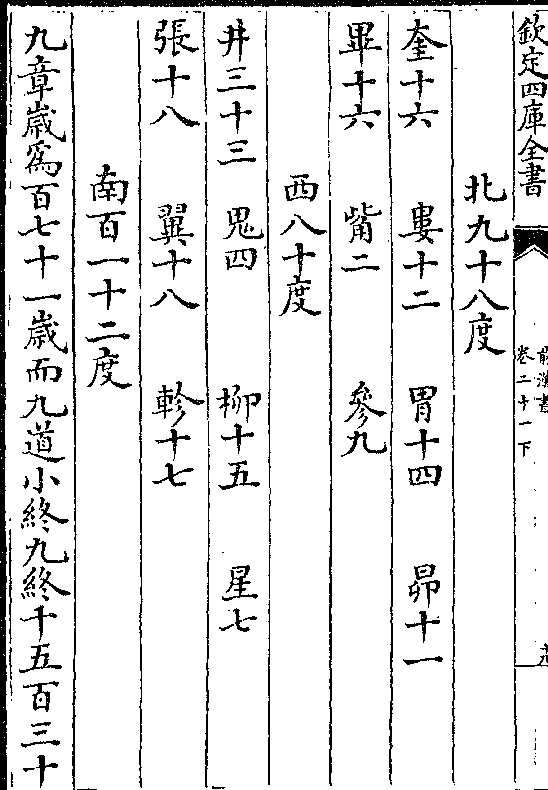 欽定四庫全書
卷二十一下
北九十八度
奎十六 婁十二 胃十四 昴十一
畢十六 觜二 參九
西八十度
井三十三 鬼四 柳十五 星七
張十八 翼十八 軫十七
南百一十二度
九章歲爲百七十一歲而九道小終九終千五百三十